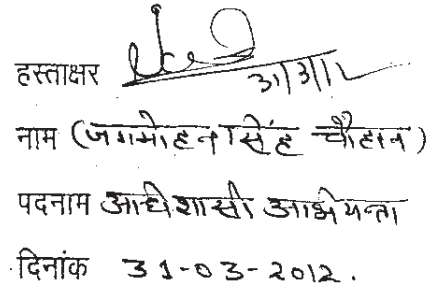 हस्ताक्षर 31/3/12
नाम (जगमोहन सिंह चौहान)
पदनाम अधिशासी अभियन्ता
दिनांक 31-03-2012.